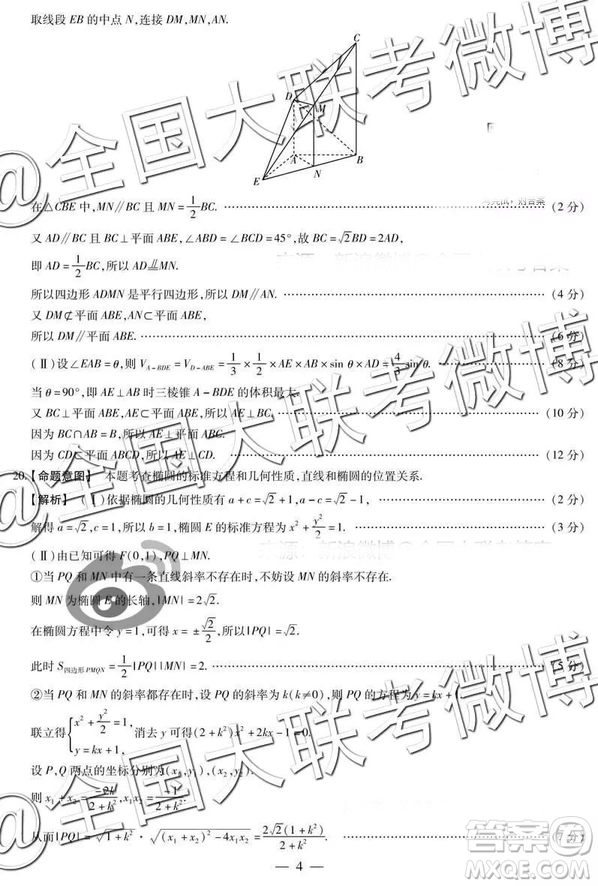 取线段 EB 的中点 N,连接 DM,MN,AN.
C
D
M
A
B
E
N
在△CBE 中,MN∥BC 且 MN=1/2 BC. (2 分)
又 AD∥BC 且 BC⊥平面 ABE,∠ABD=∠CBD=45°,故 BC=√2BD=2AD,
即 AD=1/2 BC,所以 AD∥=MN.
所以四边形 ADMN 是平行四边形,所以 DM∥AN. (4 分)
又 DM⊄平面 ABE,AN⊂平面 ABE,
所以 DM∥平面 ABE. (6 分)
(Ⅱ)设∠EAB=θ,则 V_{A-BDE}=V_{D-ABE}=1/3×1/2×AE×AB×sin θ×AD=4/3 sin θ. (8 分)
当 θ=90°,即 AE⊥AB 时三棱锥 A-BDE 的体积最大.
又 BC⊥平面 ABE,AE⊂平面 ABE,所以 AE⊥BC. (10 分)
因为 BC∩AB=B,所以 AE⊥平面 ABCD.
因为 CD⊂平面 ABCD,所以 AE⊥CD. (12 分)
20.【命题意图】 本题考查椭圆的标准方程和几何性质,直线和椭圆的位置关系.
【解析】 (Ⅰ)依据椭圆的几何性质有 a+c=√2+1,a-c=√2-1. (2 分)
解得 a=√2,c=1,所以 b=1,椭圆 E 的标准方程为 x²+y²/2=1. (3 分)
(Ⅱ)由已知可得 F(0,1),PQ⊥MN.
①当 PQ 和 MN 中有一条直线斜率不存在时,不妨设 MN 的斜率不存在时.
则 MN 为椭圆 E 的长轴,|MN|=2√2.
在椭圆方程中令 y=1,可得 x=±√2/2,所以|PQ|=√2.
此时 S_{四边形PMQN}=1/2|PQ||MN|=2. (5 分)
②当 PQ 和 MN 的斜率都存在时,设 PQ 的斜率为 k(k≠0),则 PQ 的方程为 y=kx+1.
联立得{x²+y²/2=1, y=kx+1, 消去 y 可得(2+k²)x²+2kx-1=0.
设 P,Q 两点的坐标分别为(x₁,y₁),(x₂,y₂).
则 x₁+x₂=-2k/(2+k²),x₁x₂=-1/(2+k²).
从而|PQ|=√(1+k²)·√((x₁+x₂)²-4x₁x₂)=2√2(1+k²)/(2+k²). (7 分)
— 4 —
@全国大联考微博
@全国大联考微博
@全国大联考微博
答案圈
MXQE.COM